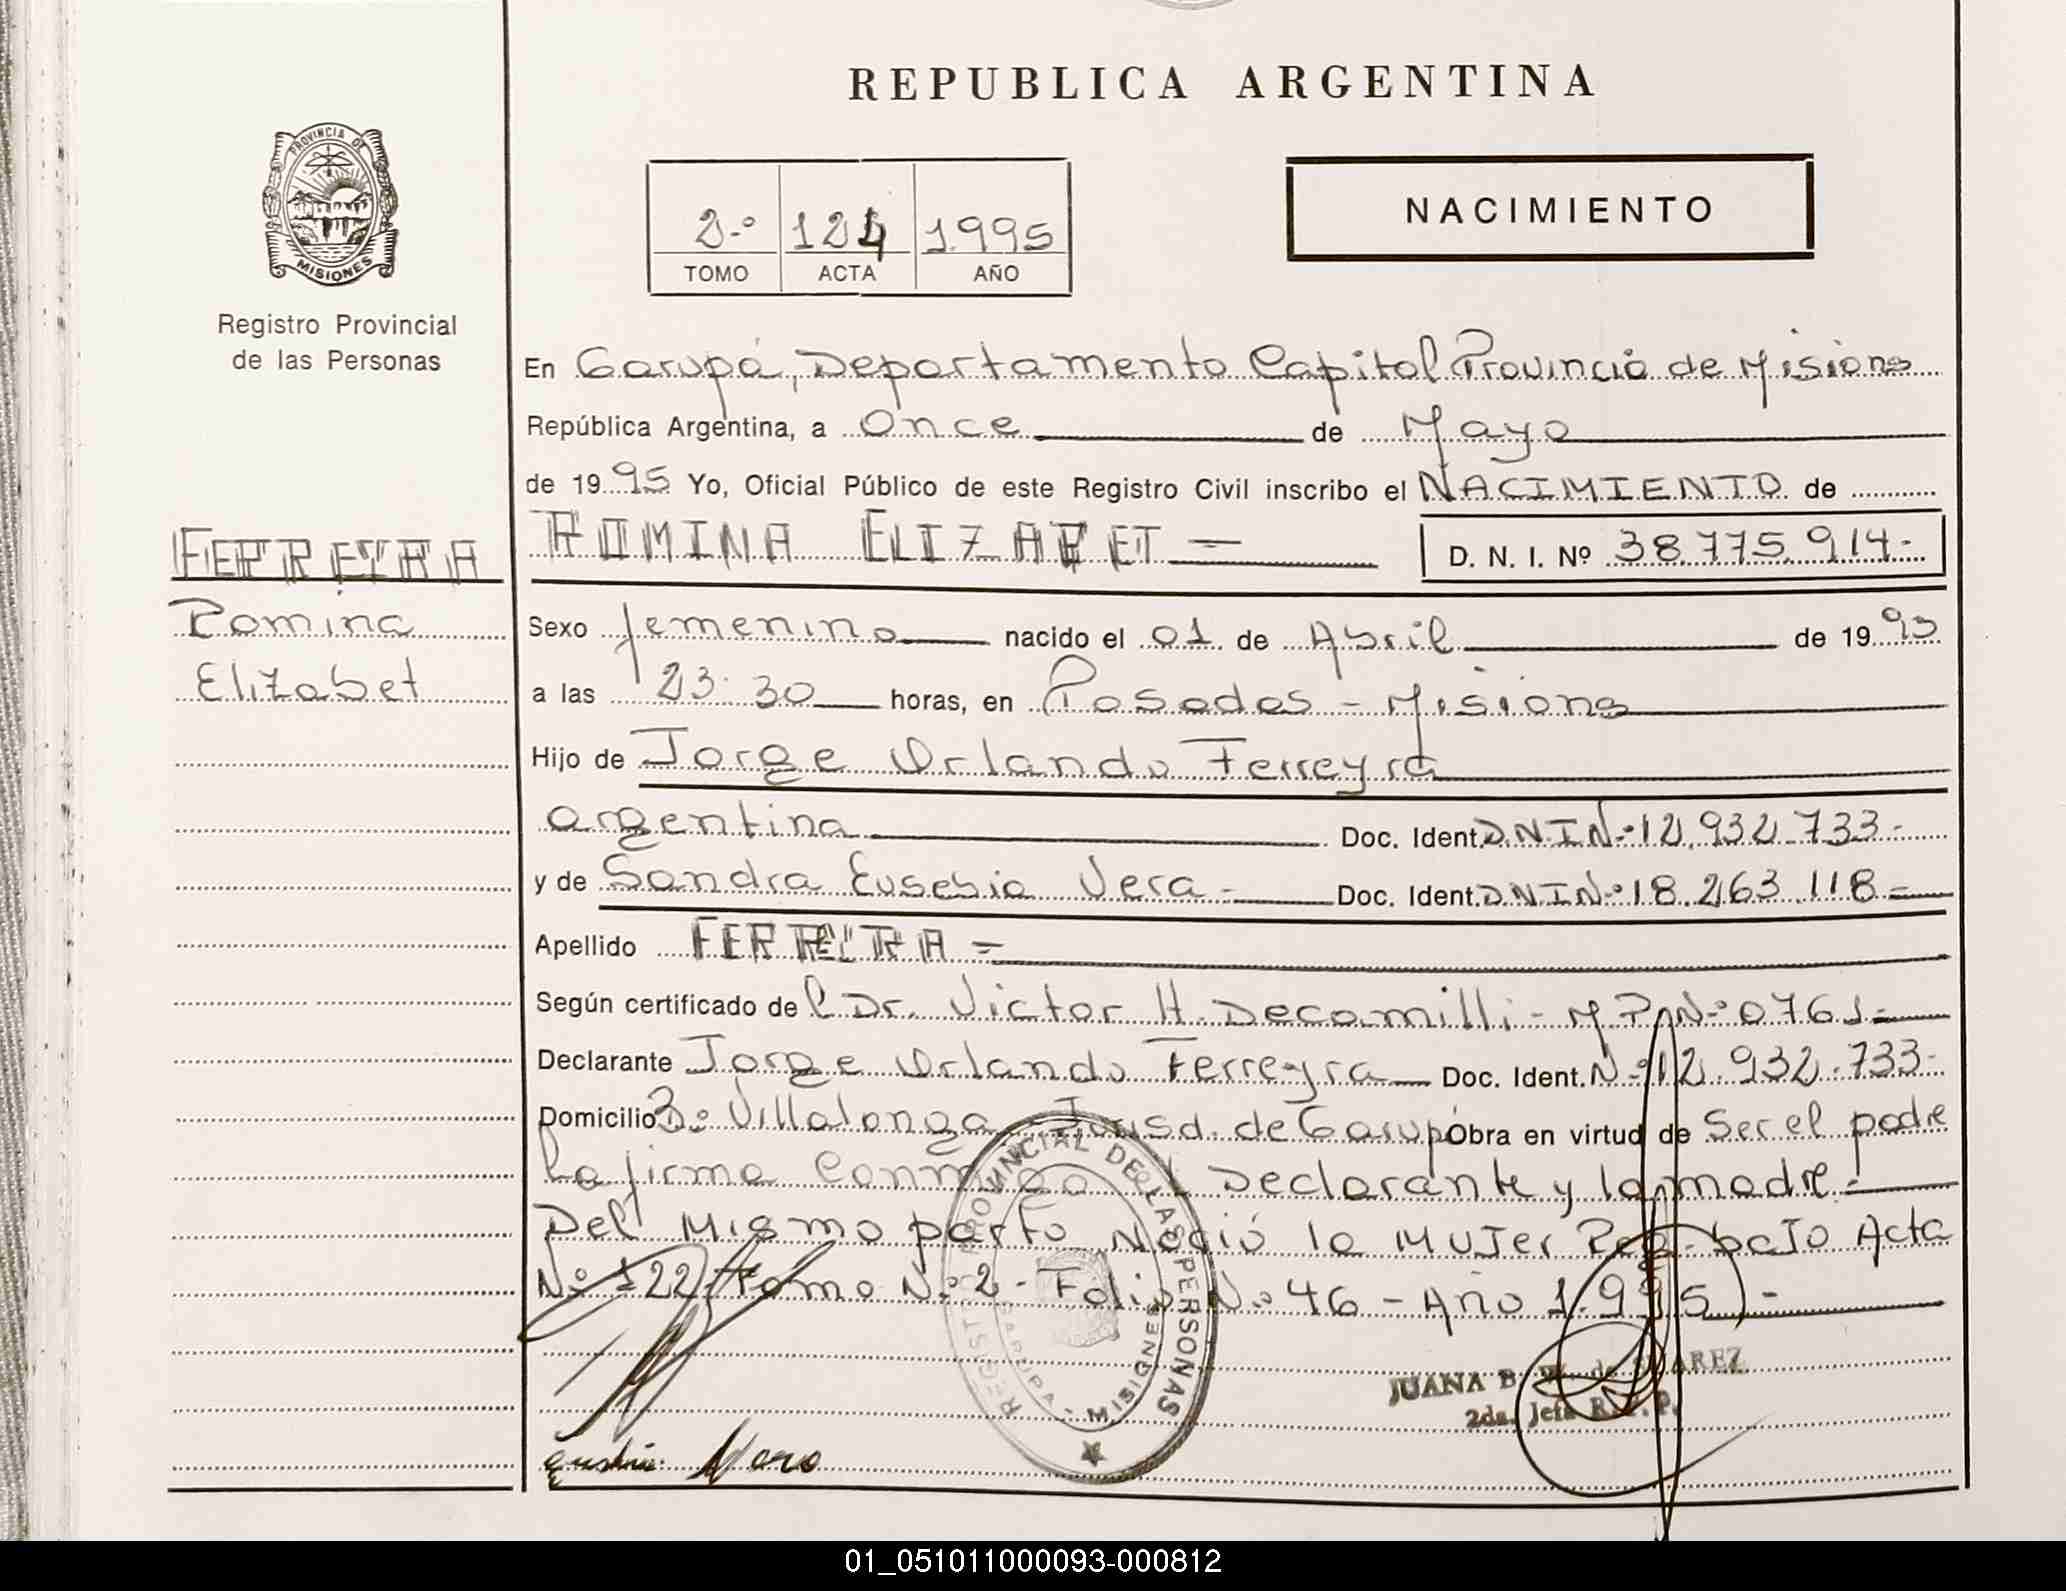 REPUBLICA ARGENTINA
PROVINCIA DE
MISIONES
Registro Provincial
de las Personas
2º 124 1995
TOMO ACTA AÑO
NACIMIENTO
En Garupá, Departamento Capital Provincia de Misiones
República Argentina, a Once de Mayo
de 1995 Yo, Oficial Público de este Registro Civil inscribo el NACIMIENTO de
FERREYRA
ROMINA ELIZABET = D. N. I. Nº 38.775.914-
Romina
Elizabet
Sexo femenino nacido el 01 de Abril de 1995
a las 23:30 horas, en Posadas - Misiones
Hijo de Jorge Orlando Ferreyra
argentina Doc. Ident. D.N.I Nº 12.932.733-
y de Sandra Eusebia Vera - Doc. Ident. D.N.I Nº 18.263.118 =
Apellido FERREYRA =
Según certificado de l Dr. Victor H. Decamilli - M.P. Nº 0761
Declarante Jorge Orlando Ferreyra Doc. Ident. Nº 12.932.733-
Domicilio Bº Villalonga Jurisd. de Garupá Obra en virtud de Ser el padre
La firma Conmigo el Declarante y la madre.-
Del Mismo parto Nació la Mujer Reg. bajo Acta
Nº 122 Tomo Nº 2 - Folio Nº 46 - Año 1.995) -
REGISTRO PROVINCIAL DE LAS PERSONAS
GARUPA - MISIONES
JUANA B. de SUAREZ
2da. Jefa R. P. P.
Vera
01_051011000093-000812